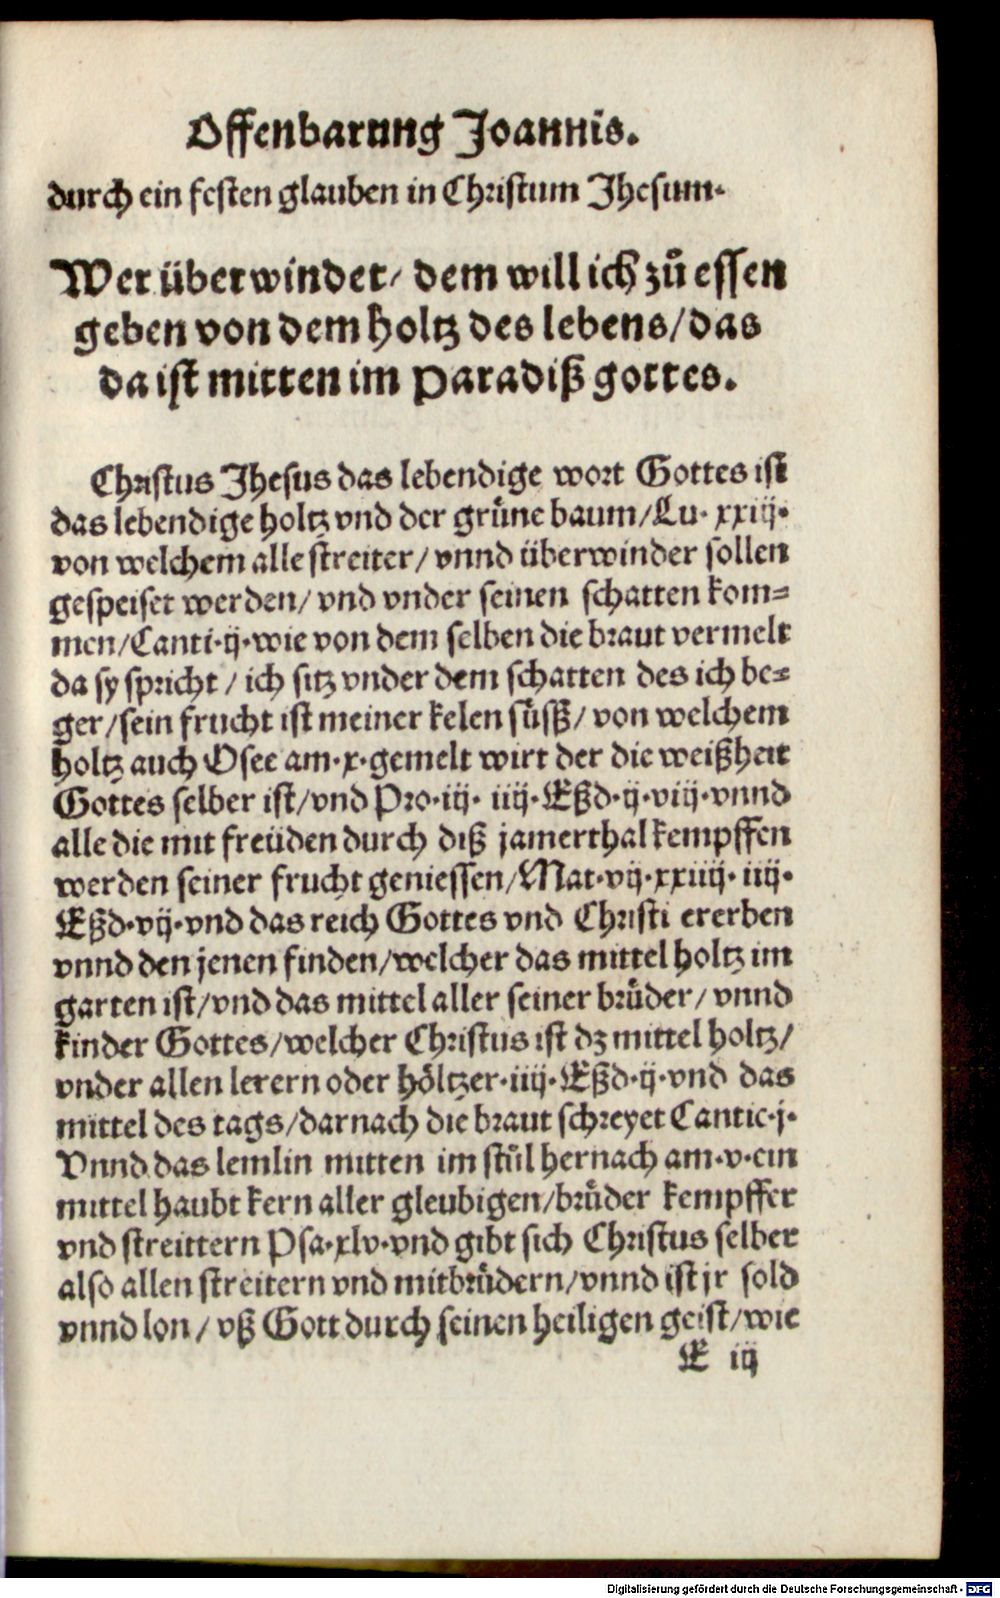 Offenbarung Joannis.
durch ein festen glauben in Christum Jhesum.
Wer überwindet/ dem will ich zů essen
geben von dem holtz des lebens/das
da ist mitten im Paradiß gottes.
Christus Jhesus das lebendige wort Gottes ist
das lebendige holtz vnd der grüne baum/Lu. xxiij.
von welchem alle streiter/ vnnd überwinder sollen
gespeiset werden/ vnd vnder seinen schatten kom-
men/Canti.ij.wie von dem selben die braut vermelt
da sy spricht/ ich sitz vnder dem schatten des ich be-
ger/sein frucht ist meiner kelen süsß/ von welchem
holtz auch Osee am.x.gemelt wirt der die weißheit
Gottes selber ist/vnd Pro.iij. iiij.Eßd.ij.viij.vnnd
alle die mit freüden durch diß jamerthal kempffen
werden seiner frucht geniessen/Mat.vij.xxiiij.iiij.
Eßd.vij.vnd das reich Gottes vnd Christi ererben
vnnd den jenen finden/welcher das mittel holtz im
garten ist/vnd das mittel aller seiner brüder/ vnnd
kinder Gottes/welcher Christus ist dz mittel holtz/
vnder allen lerern oder höltzer.iiij.Eßd.ij.vnd das
mittel des tags/darnach die braut schreyet Cantic.j.
Vnnd das lemlin mitten im stůl hernach am.v.ein
mittel haubt kern aller gleubigen/brüder kempffer
vnd streittern Psa.xlv.vnd gibt sich Christus selber
also allen streitern vnd mitbrüdern/vnnd ist jr sold
vnnd lon/ vß Gott durch seinen heiligen geist/wie
E iij
Digitalisierung gefördert durch die Deutsche Forschungsgemeinschaft - DFG